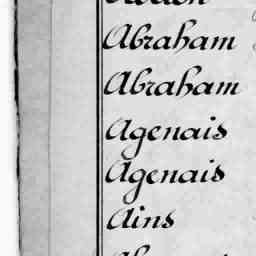 Abraham
Abraham
Agenais
Agenais
Ains